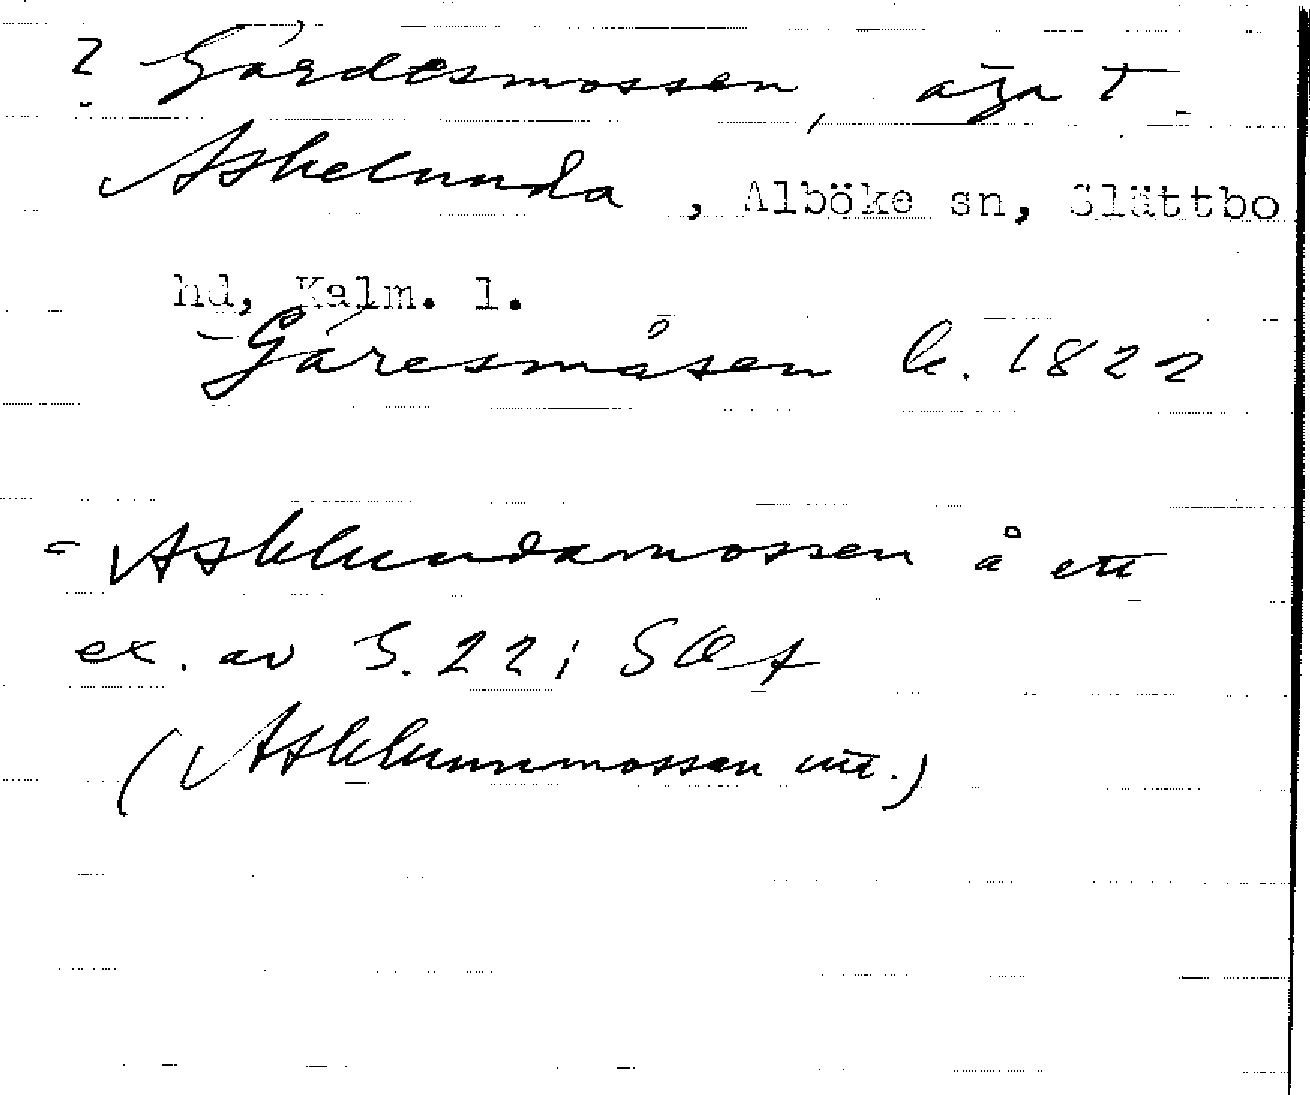 ? Gärdesmossen, äga t.
Askelunda, Alböke sn, Slättbo
hd, Kalm. l.
Gäresmåsen k. 1822
= Asklundamossen å ett
ex. av S. 22 i SOA
(Asklunnmossen utt.)